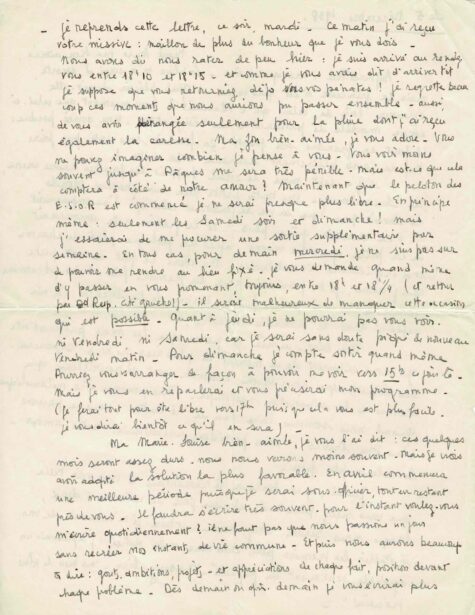 - Je reprends cette lettre, ce soir mardi. Ce matin j'ai reçu
votre missive : maillon de plus au bonheur que je vous dois -
Nous avons dû nous rater de peu hier : je suis arrivé au rendez
vous entre 18h10 et 18h15 - et comme je vous avais dit d'arriver tôt
je suppose que vous retourniez, déjà vos pénates ! je regrette beau
coup ces moments que nous aurions pu passer ensemble - aussi
de vous avoir dérangée seulement pour la pluie dont j'ai reçu
également la caresse. Ma bien-aimée, je vous adore. Vous
ne pouvez imaginer combien je pense à vous - Vous voir moins
souvent jusqu'à Pâques me sera très pénible - mais est-ce que cela
comptera à côté de notre amour ? Maintenant que le peloton des
E.S.O.R est commencé je ne serai presque plus libre. En principe
même : seulement les Samedi soir et dimanche ! mais
j'essaierai de me procurer une sortie supplémentaire par
semaine. En tous cas, pour demain mercredi, je ne suis pas sûr
de pouvoir me rendre au lieu fixé. je vous demande quand même
d'y passer en vous promenant, toujours, entre 18h et 18h1/4 (et retour
par Rep. côté gauche!) - il serait malheureux de manquer cette occasion
qui est possible - Quant à jeudi, je ne pourrai pas vous voir.
ni Vendredi, ni Samedi, car je serai sans doute piqué de nouveau
Vendredi matin - Pour dimanche je compte sortir quand même
Pourrez vous vous arranger de façon à pouvoir me voir vers 15h ce jour là.
Mais je vous en reparlerai et vous préciserai mon programme -
(je ferai tout pour être libre vers 17h puisque cela vous est plus facile.
je vous dirai bientôt ce qu'il en sera) -
Ma Marie-Louise bien-aimée, je vous l'ai dit : ces quelques
mois seront assez durs - nous nous verrons moins souvent. Mais je vous
avoir adopté la solution la plus favorable. En avril commencera
une meilleure période puisque je serai sous-officier, tout en restant
près de vous - Il faudra s'écrire très souvent. pour l'instant voulez-vous
m'écrire quotidiennement ? il ne faut pas que nous passions un jour
sans recréer nos instants de vie commune - Et puis nous aurons beaucoup
à dire : goûts, ambitions, projets - et appréciations de chaque fait, position devant
chaque problème - Dès demain ou après-demain je vous écrirai plus